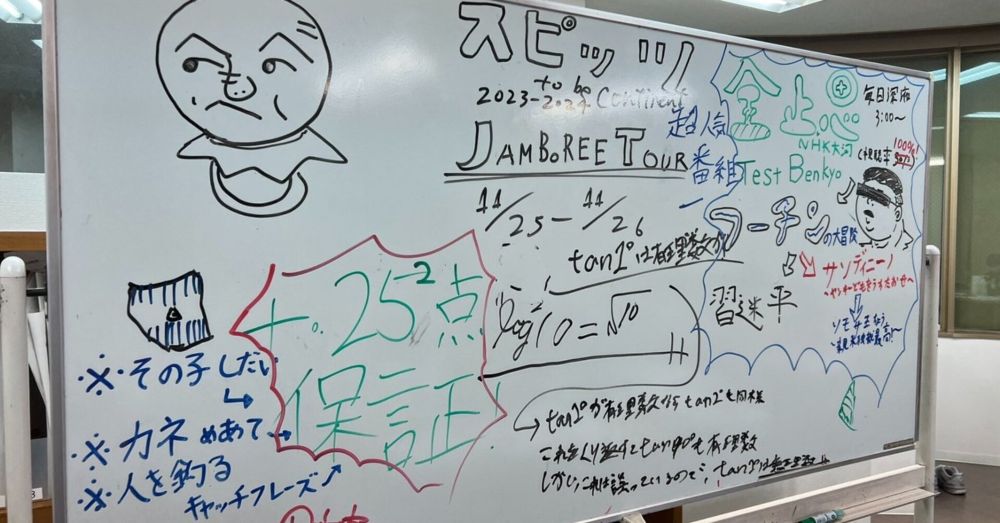 スピッツ
to be
2023-2024 continent
JAMBOREE TOUR
11/25-11/26
tan1°は有理数か
log10=√10
tan1°が有理数なら tan2°も同様
これをくり返すとtan90°も有理数
しかし、これは誤っているので、tan1°は無理数
超人気
番組
毎日深夜
3:00〜
NHK大河
視聴率
100%!
Test Benkyo
コーチンの大冒険
サンディーノ
習近平
+0.25²点
保証
※その子しだい
※カネめあて
※人を釣る
キャッチフレーズ